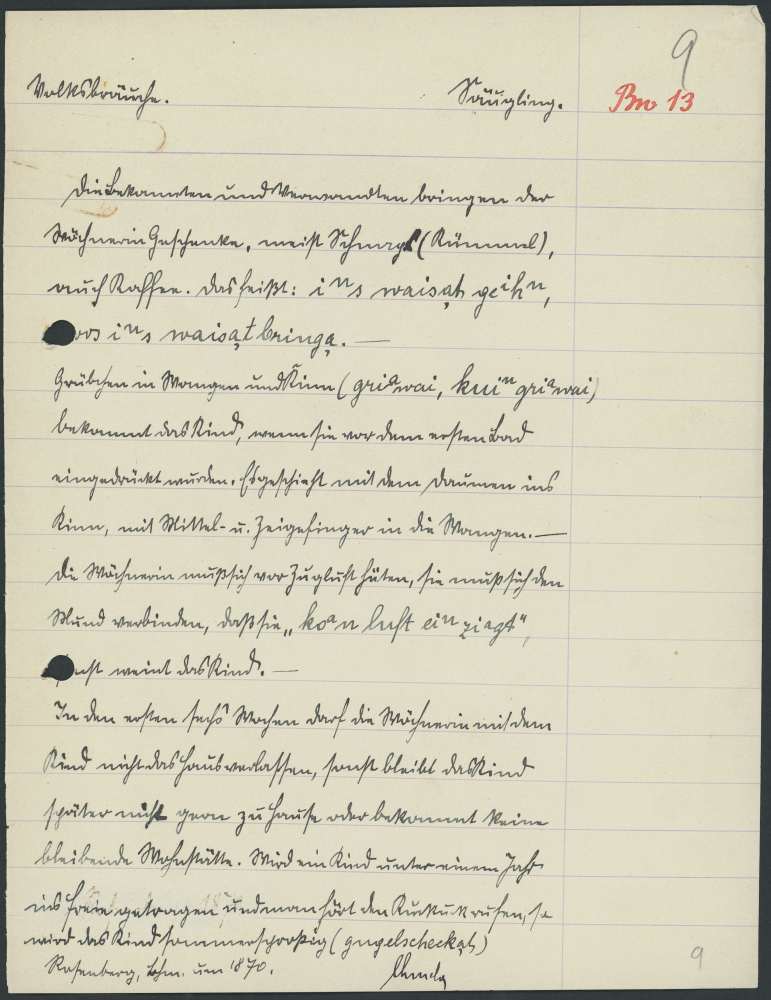 9
Volksbräuche. Säugling. Bw 13
Die Bekannten und Verwandten bringen der
Wöchnerin Geschenke, meist (Kümmel),
auch Kaffee. Das heißt: iⁿs waisat geihn,
iⁿs waisat bringa. —
Grübchen in Wangen und Kinn (griawai, kuiⁿ griawai)
bekommt das Kind, wenn sie vor dem ersten Bad
eingedrückt wurden. Es geschieht mit dem Daumen ins
Kinn, mit Mittel- u. Zeigefinger in die Wangen. —
Die Wöchnerin muß sich vor Zugluft hüten, sie muß sich den
Mund verbinden, daß sie „koaⁿ luft eiⁿziagt“,
sonst weint das Kind. —
In den ersten sechs Wochen darf die Wöchnerin mit dem
Kind nicht das Haus verlassen, sonst bleibt das Kind
später nicht gern zu Hause oder bekommt keine
bleibende Wohnstätte. Wird ein Kind unter einem Jahr
ins Freie getragen und man hört den Kuckuck rufen, so
wird das Kind sommersprossig (gugelscheckat)
Rosenberg, Bhm. um 1870.
9